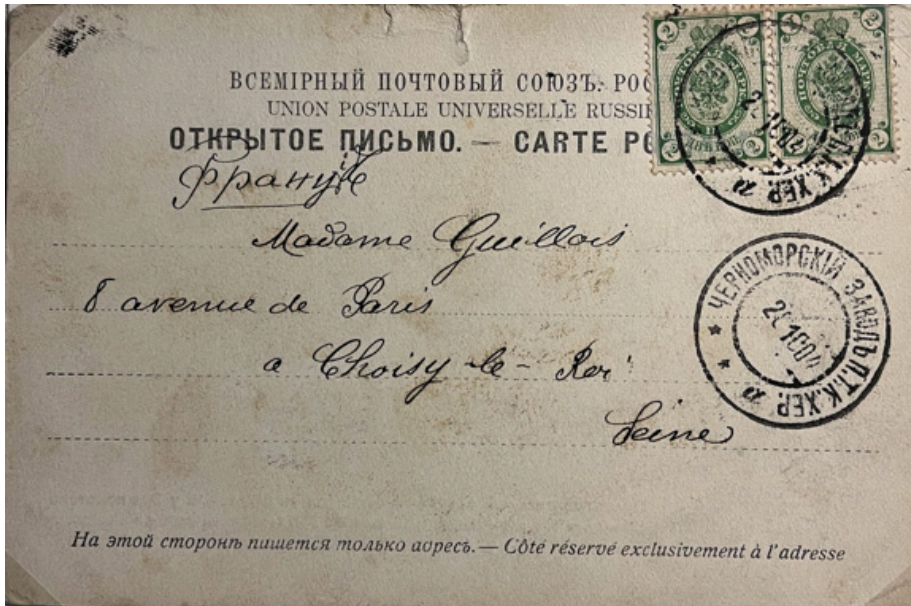 ВСЕМІРНЫЙ ПОЧТОВЫЙ СОЮЗЪ. РОС
UNION POSTALE UNIVERSELLE RUSSIE
ОТКРЫТОЕ ПИСЬМО. — CARTE PO
2 2 2 2
Madame Guillois
8 avenue de Paris
a Choisy-le-Roi
Seine
ЧЕРНОМОРСКІЙ ЗАВОДЪ П.Т.К. ХЕР.
На этой сторонѣ пишется только адресъ. — Côté réservé exclusivement à l'adresse